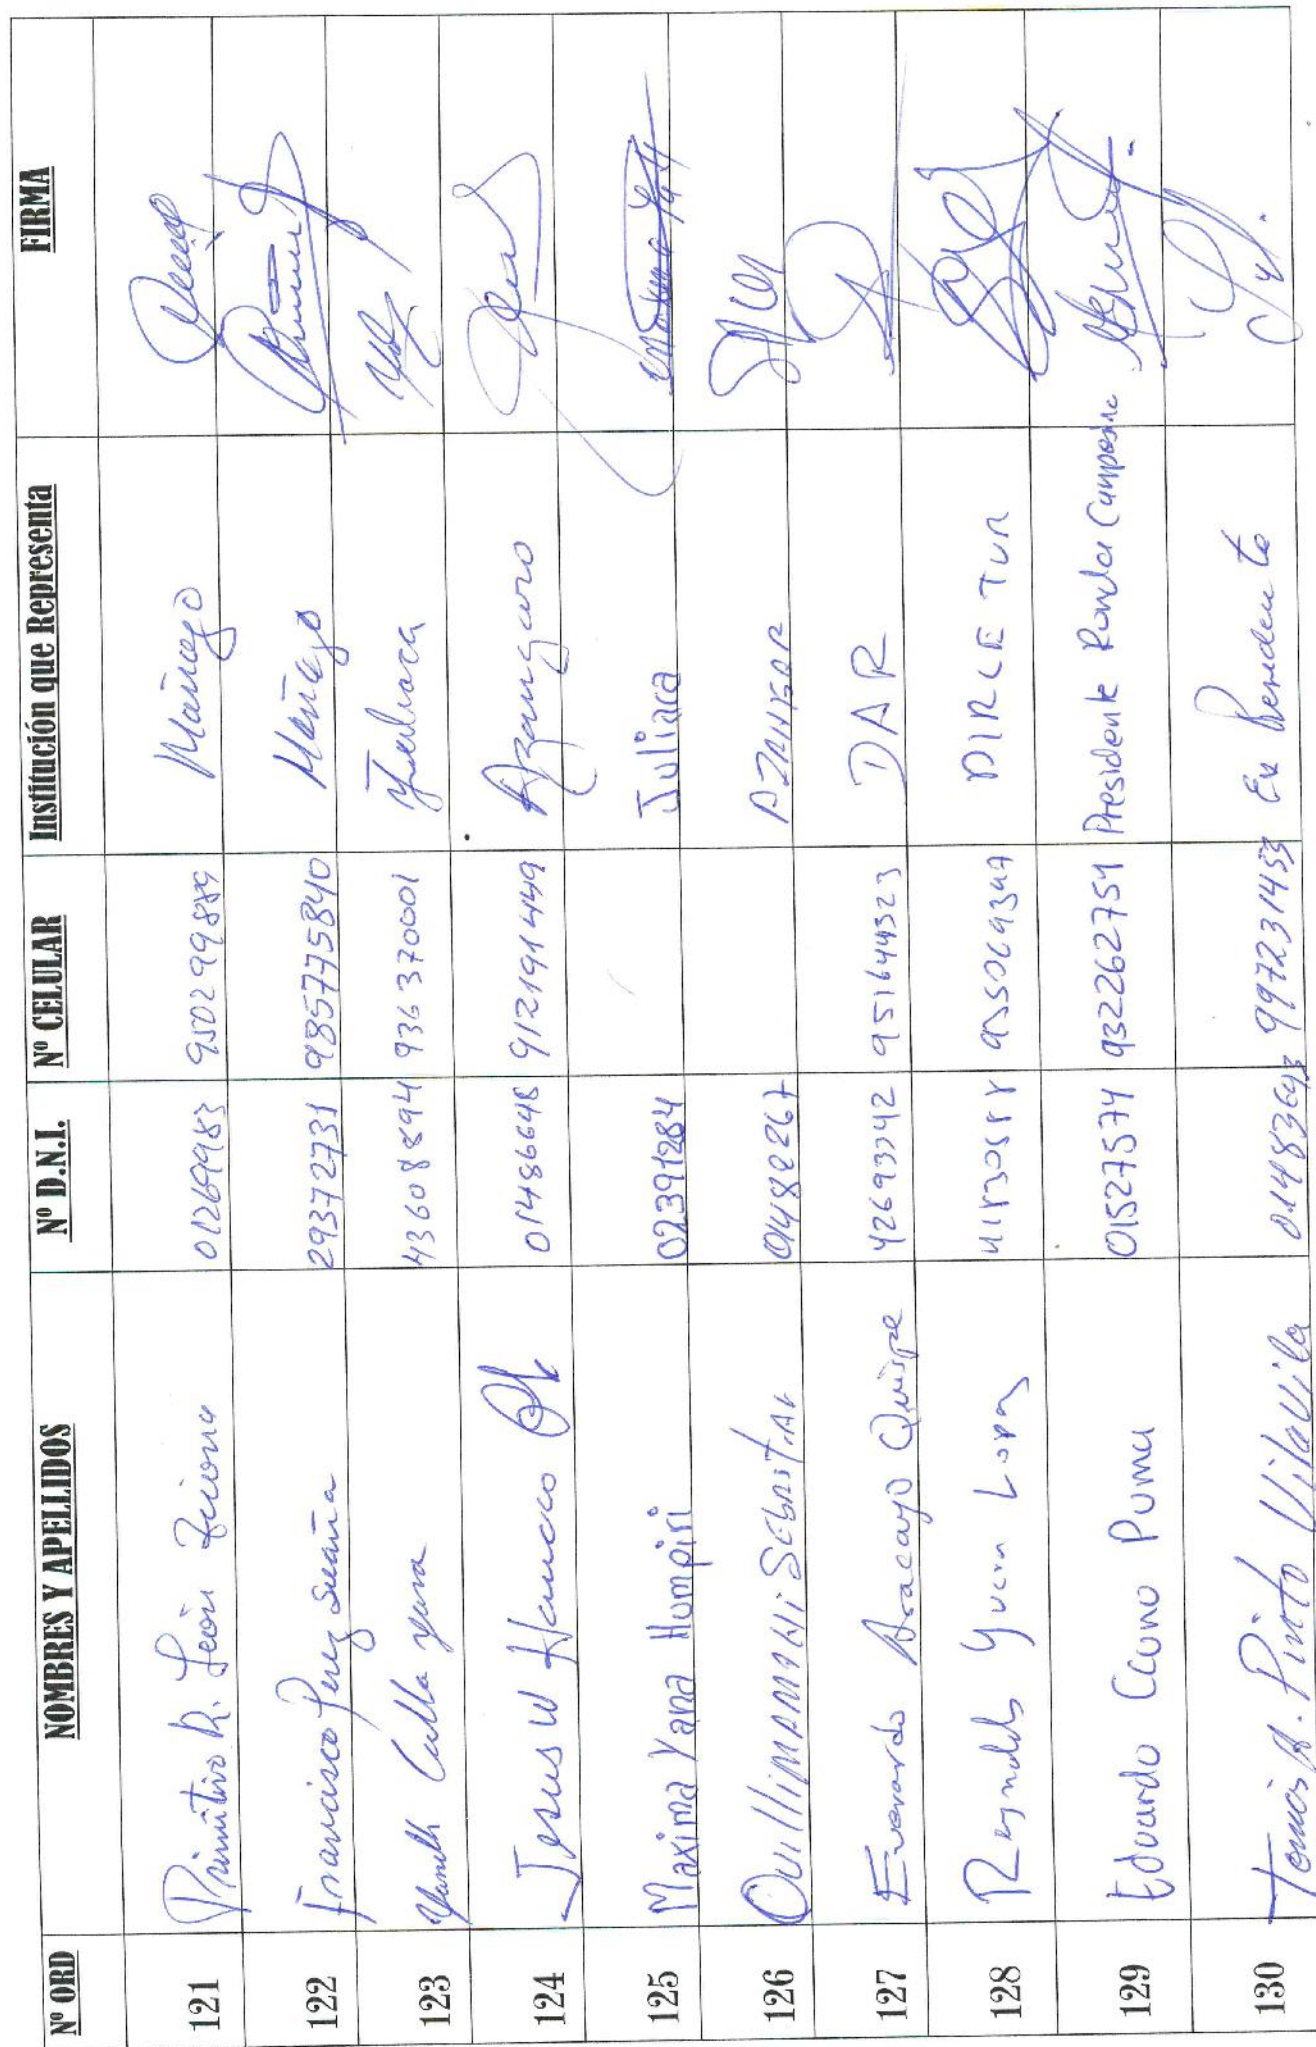 Nº ORD NOMBRES Y APELLIDOS Nº D.N.I. Nº CELULAR Institución que Representa FIRMA
121 Primitivo R. León 01269983 950299889 Mañazo
122 Francisco Perez Suaña 29372731 985775840 Mañazo
123 Yaneth Calla Yana 43608894 936370001 Juliaca
124 Jesus W Hancco 01486648 912191449 Azangaro
125 Maxima Yana Humpiri 02391284 Juliaca
126 Quillimamani Sebastian 01482267
127 Everardo Aracayo Quispe 42693342 951644323 DAR
128 Reynaldo DIRCETUR
129 Eduardo Ccuno Puma 01527574 932262754 Presidente Ronda Campesina
130 Tomás A. Pinto Vilavila 01483693 997231453 Ex Presidente